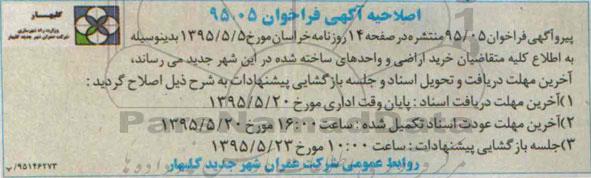 اصلاحیه آگهی فراخوان ۹۵.۰۵
پیرو آگهی فراخوان ۹۵/۰۵ منتشره در صفحه ۱۴ روزنامه خراسان مورخ ۱۳۹۵/۵/۵ بدینوسیله
به اطلاع کلیه متقاضیان خرید اراضی و واحدهای ساخته شده در این شهر جدید می رساند،
آخرین مهلت دریافت و تحویل اسناد و جلسه بازگشایی پیشنهادات به شرح ذیل اصلاح گردید :
۱)آخرین مهلت دریافت اسناد : پایان وقت اداری مورخ ۱۳۹۵/۵/۲۰
۲)آخرین مهلت عودت اسناد تکمیل شده : ساعت ۱۶:۰۰ مورخ ۱۳۹۵/۵/۲۰
۳)جلسه بازگشایی پیشنهادات : ساعت ۱۰:۰۰ مورخ ۱۳۹۵/۵/۲۳
روابط عمومی شرکت عمران شهر جدید گلبهار
گلبهار
وزارت راه و شهرسازی
شرکت عمران شهر جدید گلبهار
۹۵۱۴۶۲۷۳/پ